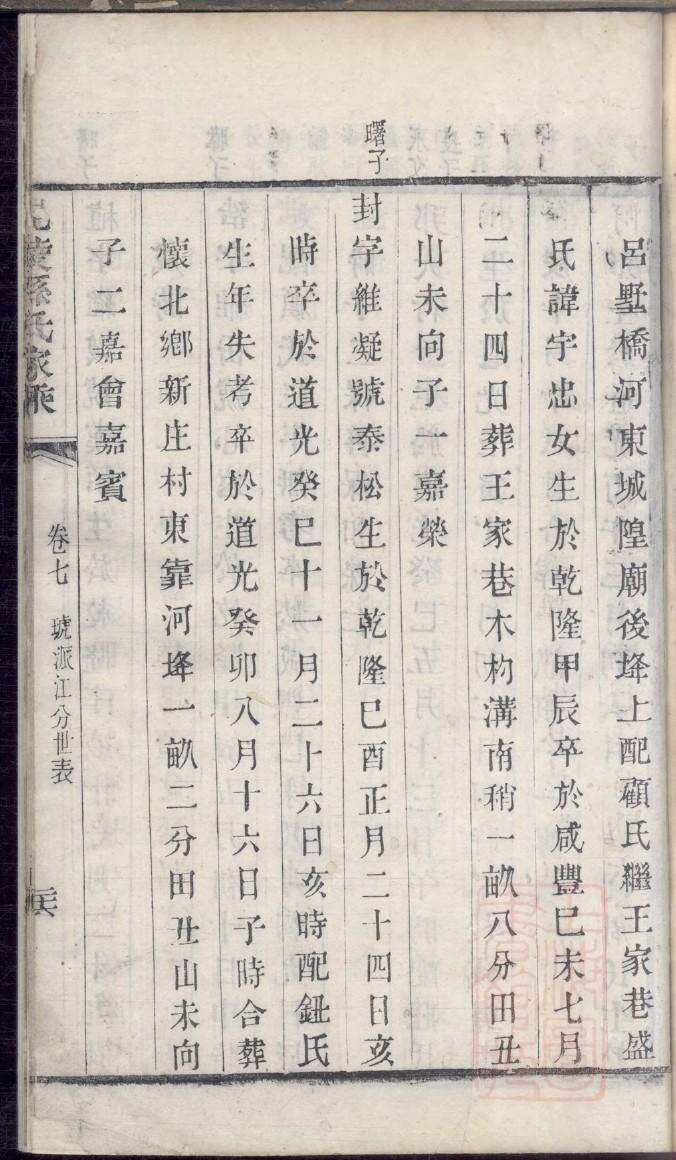 呂墅橋河東城隍廟後埄上配顧氏繼王家巷盛
氏諱宇忠女生於乾隆甲辰卒於咸豐巳未七月
二十四日葬王家巷木杓溝南稍一畝八分田丑
山未向子一嘉榮
曙子
封字維凝號泰松生於乾隆巳酉正月二十四日亥
時卒於道光癸巳十一月二十六日亥時配鈕氏
生年失考卒於道光癸卯八月十六日子時合葬
懷北鄉新庄村東靠河埄一畝二分田丑山未向
子二嘉會嘉賓
陵孫氏家乘
卷七 號派江分世表